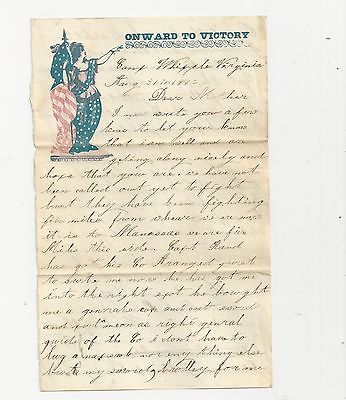 ONWARD TO VICTORY
Camp Whipple Virginia
Aug 31st 1862
Dear Mother
I now write you a few
lines to let you know
that I am well and are
getting along nicely and
hope that you are. we have not
ben callod out yet to fight
but they have been fighting
five miles from whear we are now
it is to Manassas we are five
Miles this side. Capt Rand
has got his Co Aranged
to sute me now he has got me
into the right spot he bought
me a generals cap and cut sword
and put me on as right genral
guide of the Co I dont have to
lug a napsack nor eny thing else
but my sword